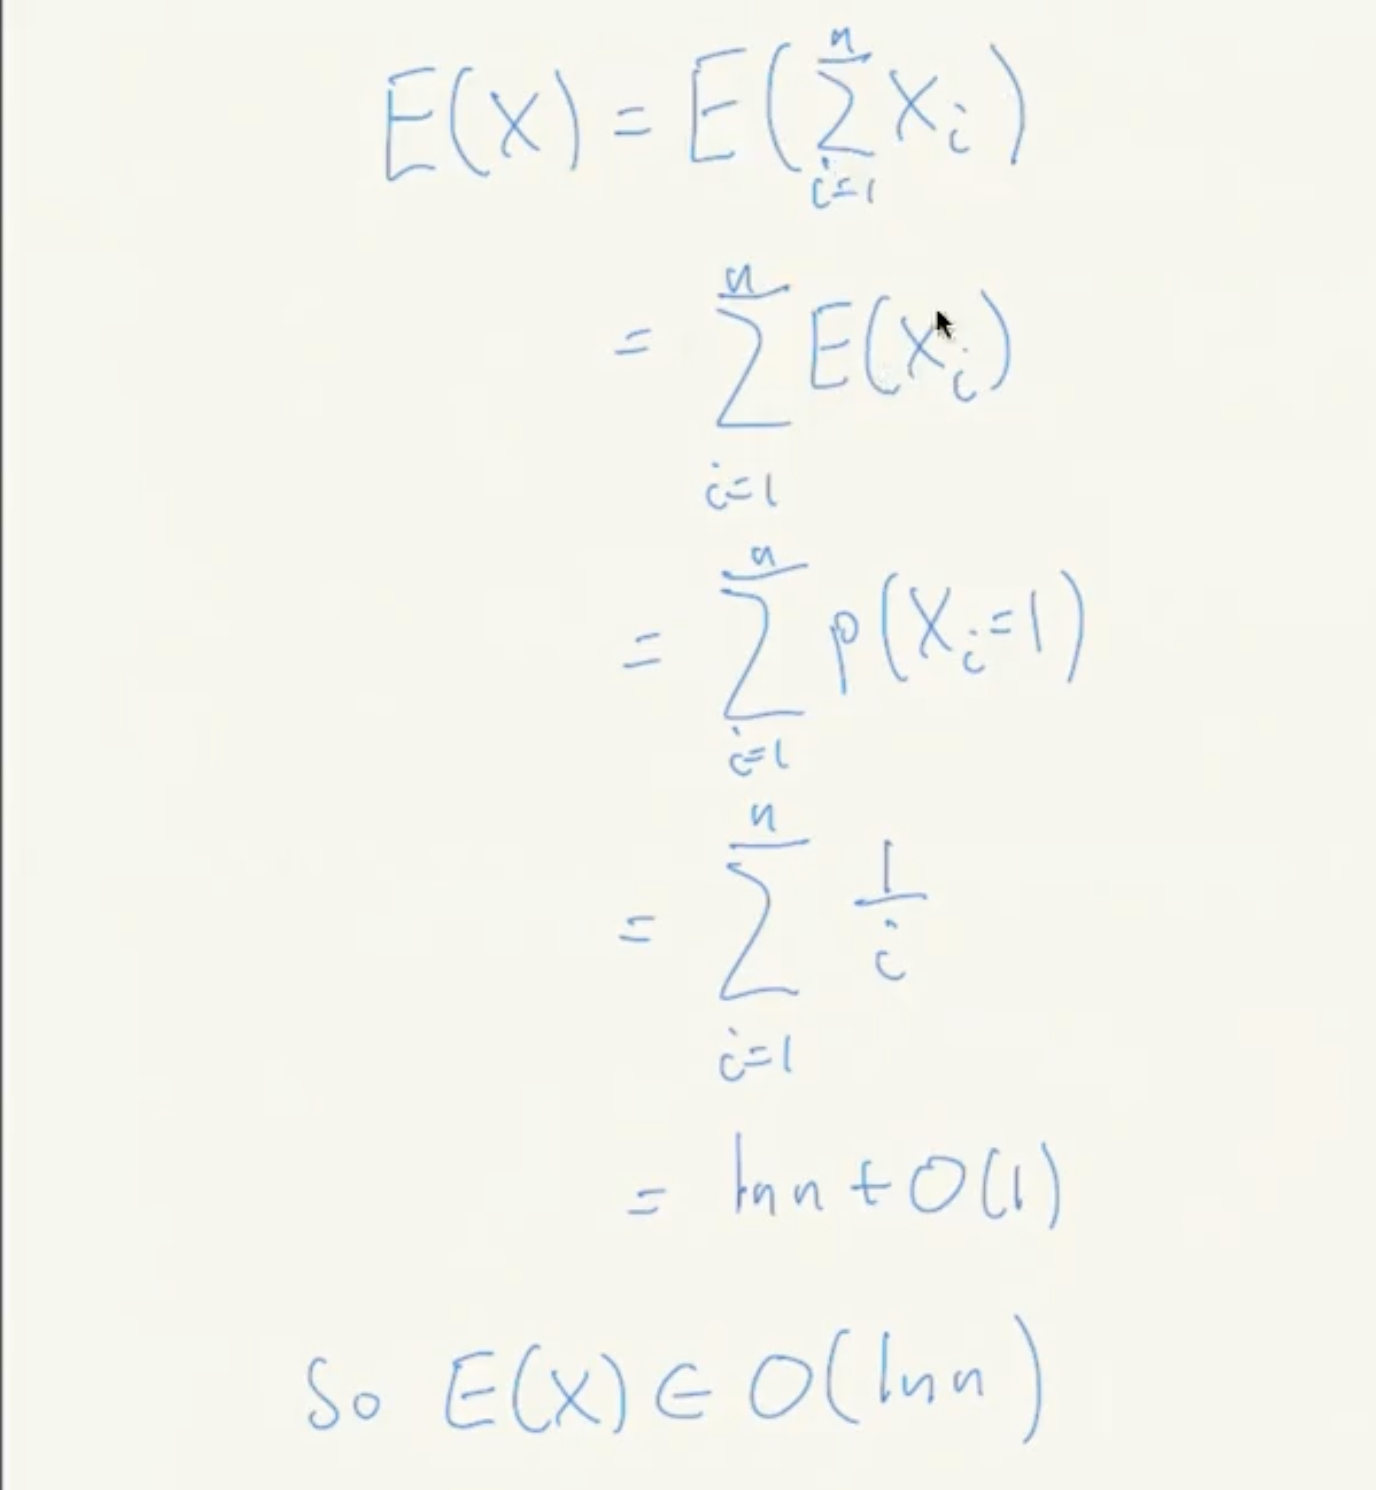 E(X) = E(∑_{i=1}^{n} X_i)
= ∑_{i=1}^{n} E(X_i)
= ∑_{i=1}^{n} p(X_i=1)
= ∑_{i=1}^{n} 1/i
= ln n + O(1)
So E(X) ∈ O(ln n)